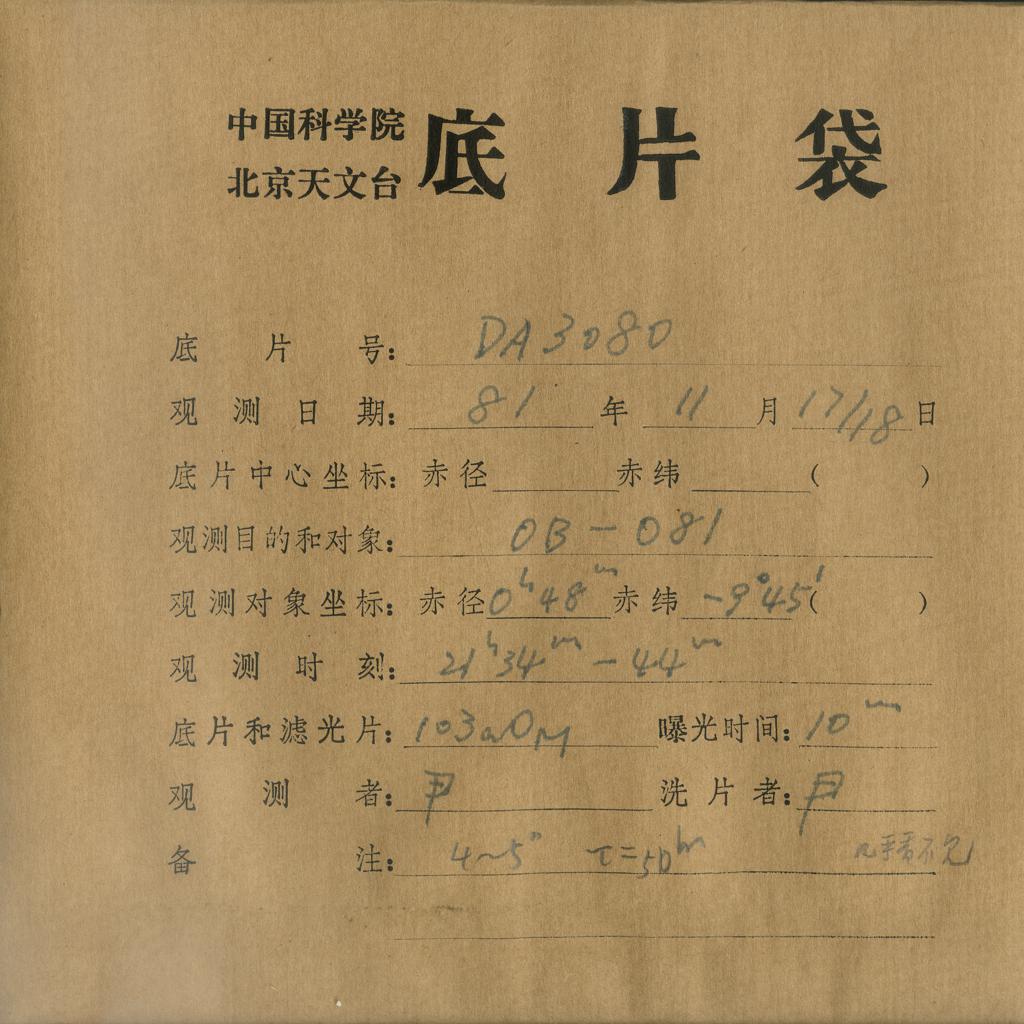 中国科学院
北京天文台 底片袋
底片号: DA3080
观测日期: 81 年 11 月 17/18 日
底片中心坐标: 赤径 赤纬 ( )
观测目的和对象: OB-081
观测对象坐标: 赤径 0h48m 赤纬 -9°45′ ( )
观测时刻: 21h34m-44m
底片和滤光片: 103aO 曝光时间: 10m
观测者: 洗片者:
备注: 4~5" τ=50